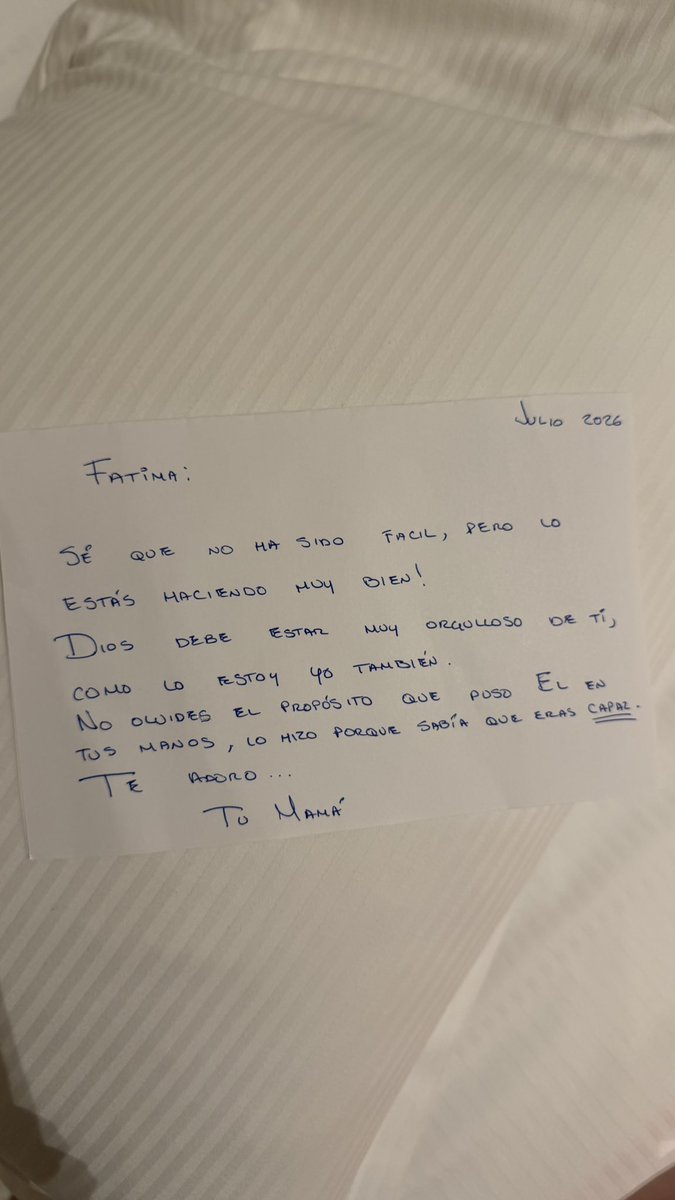 JULIO 2026
FATIMA:
SÉ QUE NO HA SIDO FACIL, PERO LO
ESTÁS HACIENDO MUY BIEN!
DIOS DEBE ESTAR MUY ORGULLOSO DE TÍ,
COMO LO ESTOY YO TAMBIÉN.
NO OLVIDES EL PROPÓSITO QUE PUSO EL EN
TUS MANOS, LO HIZO PORQUE SABÍA QUE ERAS CAPAZ.
TE ADORO...
TU MAMÁ